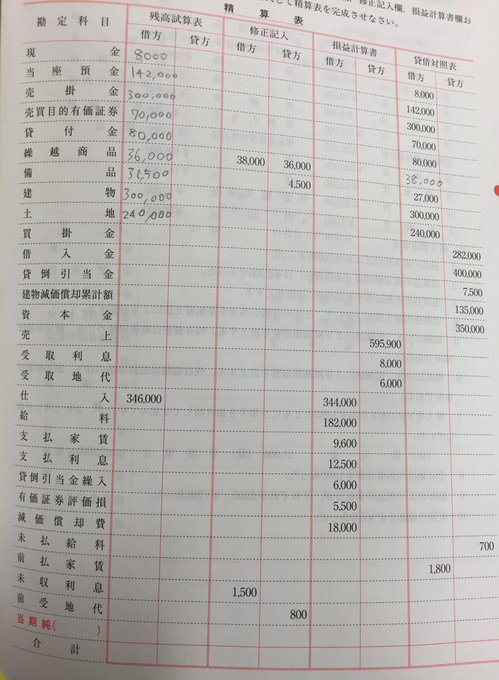 修正記入欄、損益計算書欄お
して精算表を完成させなさい。
精算表
勘定科目 残高試算表 修正記入 損益計算書 貸借対照表
借方 貸方 借方 貸方 借方 貸方 借方 貸方
現金 8000 8,000
当座預金 142,000 142,000
売掛金 300,000 300,000
売買目的有価証券 70,000 70,000
貸付金 80,000 80,000
繰越商品 36,000 38,000 36,000 38,000
備品 31,500 4,500 27,000
建物 300,000 300,000
土地 240,000 240,000
買掛金 282,000
借入金 400,000
貸倒引当金 7,500
建物減価償却累計額 135,000
資本金 350,000
売上 595,900
受取利息 8,000
受取地代 6,000
仕入 346,000 344,000
給料 182,000
支払家賃 9,600
支払利息 12,500
貸倒引当金繰入 6,000
有価証券評価損 5,500
減価償却費 18,000
未払給料 700
前払家賃 1,800
未収利息 1,500
前受地代 800
当期純( )
合計